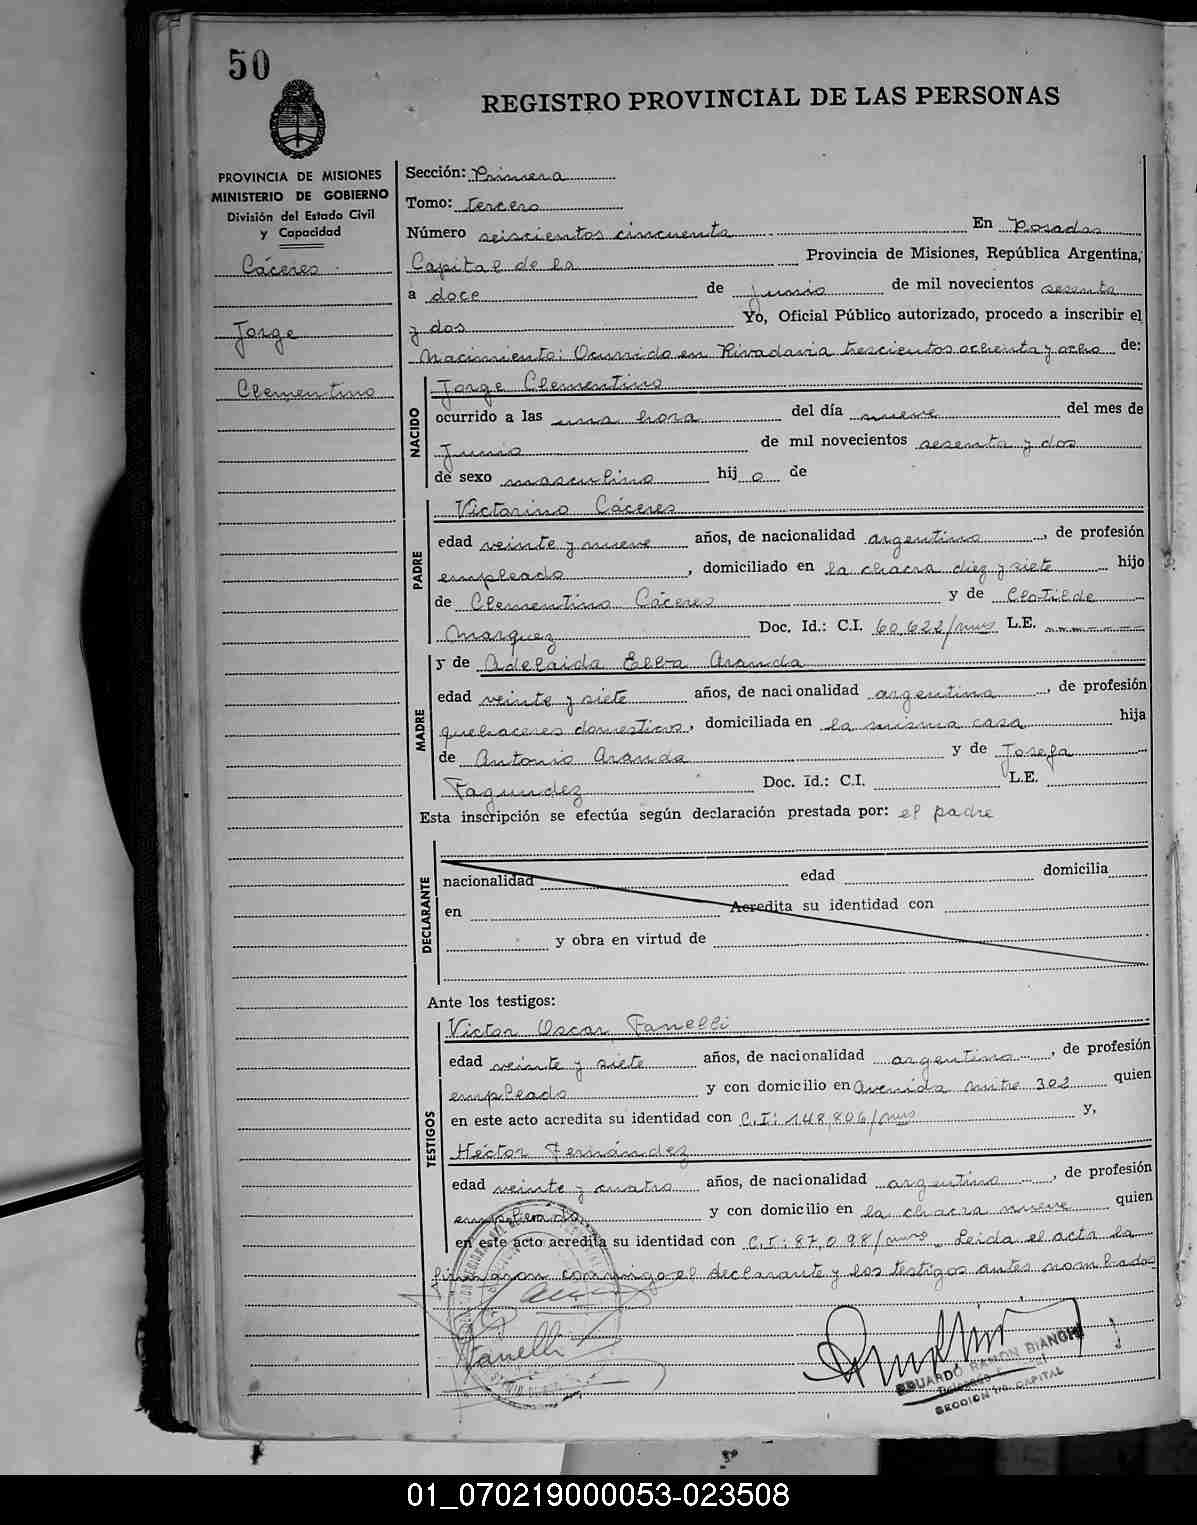 50
REGISTRO PROVINCIAL DE LAS PERSONAS
PROVINCIA DE MISIONES
MINISTERIO DE GOBIERNO
División del Estado Civil
y Capacidad
Cáceres
Jorge
Clementino
Sección: Primera
Tomo: tercero
Número seiscientos cincuenta En Posadas
Capital de la Provincia de Misiones, República Argentina,
a doce de Junio de mil novecientos sesenta
y dos Yo, Oficial Público autorizado, procedo a inscribir el
Nacimiento: Ocurrido en Rivadavia trescientos ochenta y ocho de:
NACIDO
Jorge Clementino
ocurrido a las una hora del día nueve del mes de
Junio de mil novecientos sesenta y dos
de sexo masculino hijo de
PADRE
Victorino Cáceres
edad veinte y nueve años, de nacionalidad argentino, de profesión
empleado, domiciliado en la chacra diez y siete hijo
de Clementino Cáceres y de Clotilde
Marquez Doc. Id.: C.I. 60.622/mnes L.E.
MADRE
y de Adelaida Elba Aranda
edad veinte y siete años, de nacionalidad argentina, de profesión
quehaceres domesticos, domiciliada en la misma casa hija
de Antonio Aranda y de Josefa
Fagundez Doc. Id.: C.I. L.E.
Esta inscripción se efectúa según declaración prestada por: el padre
DECLARANTE
nacionalidad edad domicilia
en Acredita su identidad con
y obra en virtud de
Ante los testigos:
TESTIGOS
Victor Oscar Fanelli
edad veinte y siete años, de nacionalidad argentino, de profesión
empleado y con domicilio en Avenida mitre 302 quien
en este acto acredita su identidad con C.I: 148,806/mnes y,
Héctor Fernández
edad veinte y cuatro años, de nacionalidad argentino, de profesión
empleado y con domicilio en la chacra nueve quien
en este acto acredita su identidad con C.I: 87,098/mnes. Leida el acta la
firmaron conmigo el declarante y los testigos antes nombrados
Fanelli
EDUARDO RAMON BIANCHI
SECCION 1ra. CAPITAL
01_070219000053-023508